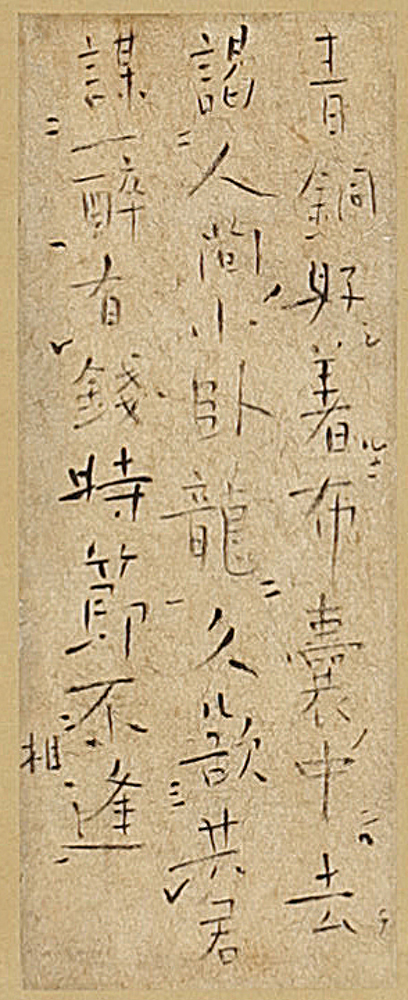 青銅好著布囊中去
謁人間小臥龍久欲共君
謀一醉有錢時節不相逢